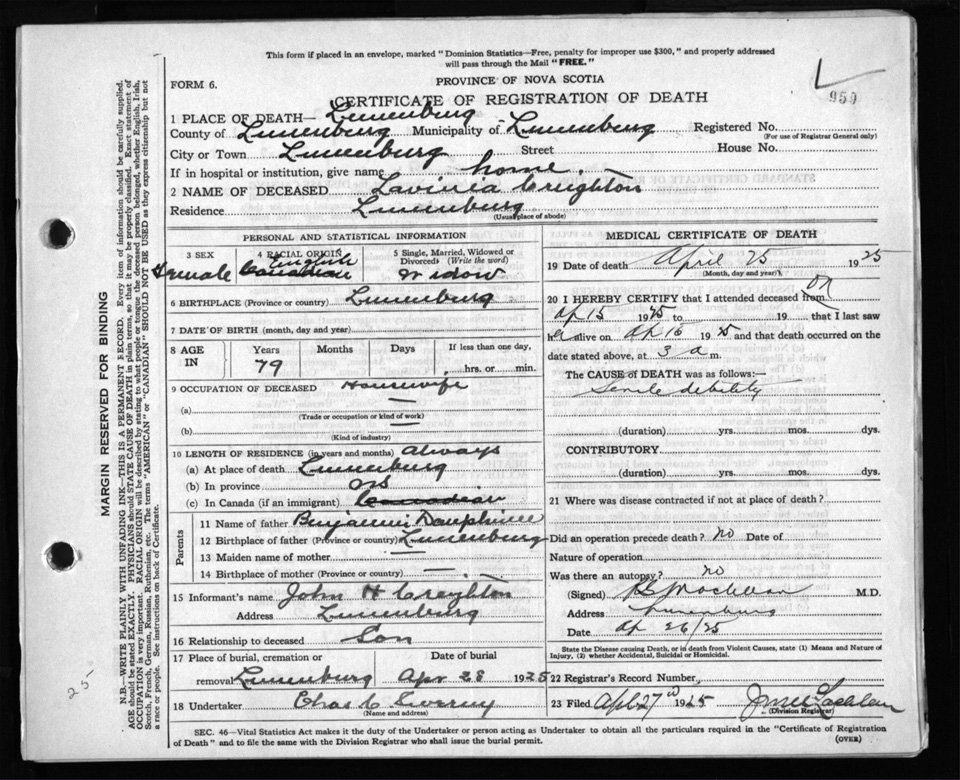 This form if placed in an envelope, marked "Dominion Statistics—Free, penalty for improper use $300," and properly addressed
will pass through the Mail "FREE."
FORM 6.
PROVINCE OF NOVA SCOTIA
959
CERTIFICATE OF REGISTRATION OF DEATH
1 PLACE OF DEATH— Lunenburg
County of Lunenburg Municipality of Lunenburg Registered No.
(For use of Registrar General only)
City or Town Lunenburg Street House No.
If in hospital or institution, give name home.
2 NAME OF DECEASED Lavinia Creighton
Residence Lunenburg
(Usual place of abode)
PERSONAL AND STATISTICAL INFORMATION
3 SEX 4 RACIAL ORIGIN 5 Single, Married, Widowed or Divorced (Write the word)
Female English Canadian Widow
6 BIRTHPLACE (Province or country) Lunenburg
7 DATE OF BIRTH (month, day and year)
8 AGE IN Years Months Days If less than one day,
79 hrs. or min.
9 OCCUPATION OF DECEASED Housewife
(a) —
(Trade or occupation or kind of work)
(b) —
(Kind of industry)
10 LENGTH OF RESIDENCE (in years and months) always
(a) At place of death Lunenburg
(b) In province NS
(c) In Canada (if an immigrant) Canadian
Parents
11 Name of father Benjamin Dauphinee
12 Birthplace of father (Province or country) Lunenburg
13 Maiden name of mother —
14 Birthplace of mother (Province or country) —
15 Informant's name John H Creighton
Address Lunenburg
16 Relationship to deceased Son
17 Place of burial, cremation or removal Date of burial
Lunenburg Apr 28 1925
18 Undertaker Chas C
(Name and address)
MEDICAL CERTIFICATE OF DEATH
19 Date of death April 25 1925
(Month, day and year)
20 I HEREBY CERTIFY that I attended deceased from on
Ap 15 1925 to 19 that I last saw
her alive on Ap 16 1925 and that death occurred on the
date stated above, at 3 a m.
The CAUSE OF DEATH was as follows:—
Senile debility
(duration) yrs. mos. dys.
CONTRIBUTORY
(duration) yrs. mos. dys.
21 Where was disease contracted if not at place of death?
Did an operation precede death? no Date of
Nature of operation
Was there an autopsy? no
(Signed) M.D.
Address Lunenburg
Date Ap 26/25
State the Disease causing Death, or in death from Violent Causes, state (1) Means and Nature of
Injury, (2) whether Accidental, Suicidal or Homicidal.
22 Registrar's Record Number
23 Filed Apl 27 1925
(Division Registrar)
SEC. 46—Vital Statistics Act makes it the duty of the Undertaker or person acting as Undertaker to obtain all the particulars required in the "Certificate of Registration
of Death" and to file the same with the Division Registrar who shall issue the burial permit.
(OVER)
MARGIN RESERVED FOR BINDING
N.B.—WRITE PLAINLY WITH UNFADING INK—THIS IS A PERMANENT RECORD. Every item of information should be carefully supplied.
AGE should be stated EXACTLY. PHYSICIANS should STATE CAUSE OF DEATH in plain terms, so that it may be properly classified. Exact statement of
OCCUPATION is very important. RACIAL ORIGIN will be described by stating to what people or tongue the deceased person belonged, whether English, Irish,
Scotch, French, German, Russian, Ruthenian, etc. The terms "AMERICAN" or "CANADIAN" SHOULD NOT BE USED as they express citizenship but not
a race or people. See instructions on back of Certificate.
25-